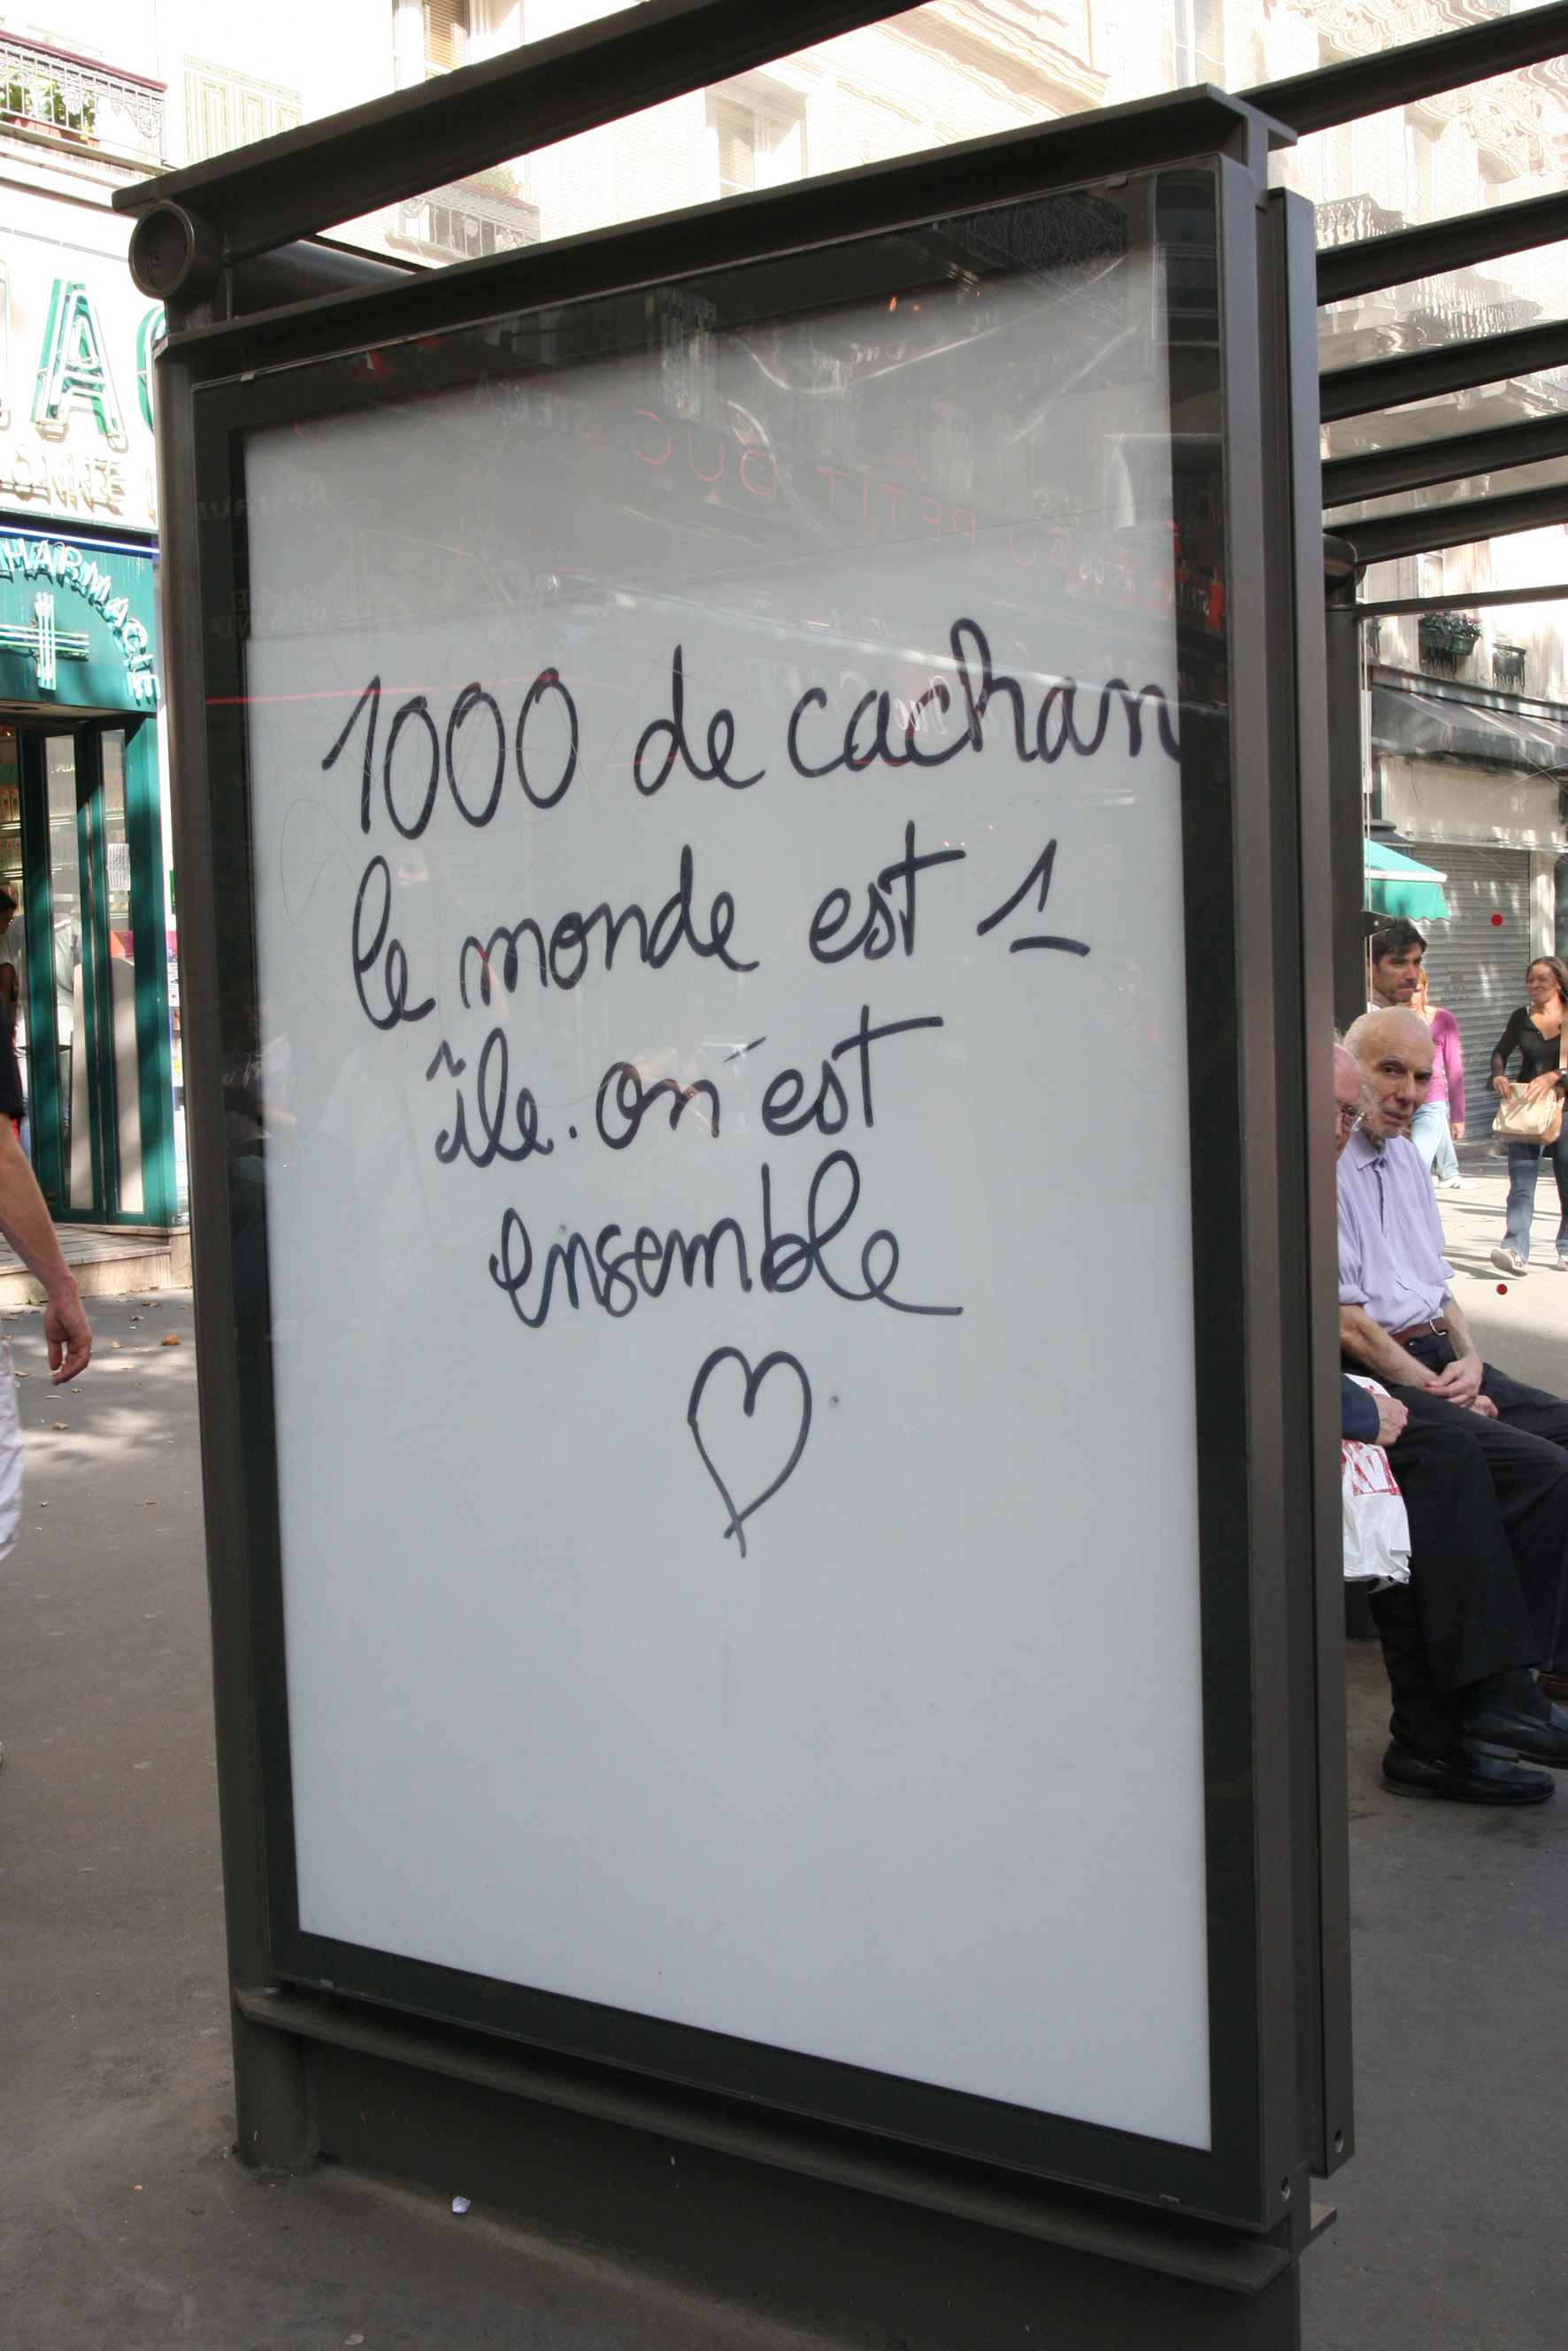 1000 de cachan
le monde est 1
île. on est
ensemble
PHARMACIE
AU PETIT DUC